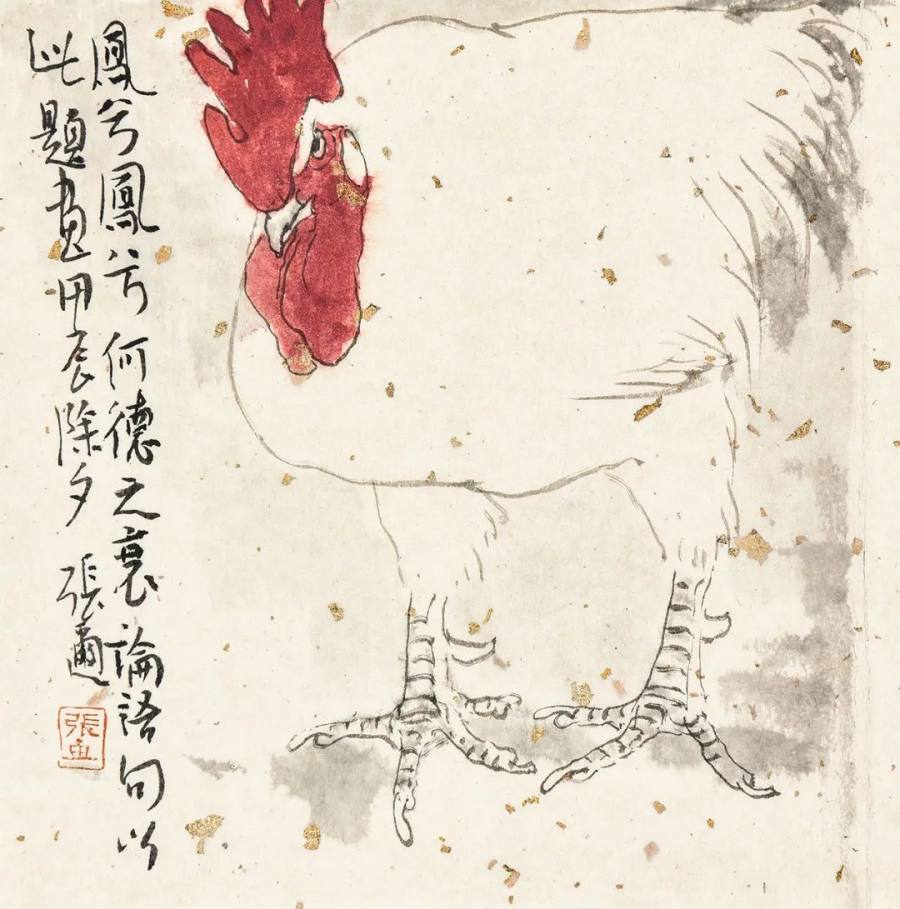 鳳兮鳳兮何德之衰論語句以
此題畫甲辰除夕 張爾
張